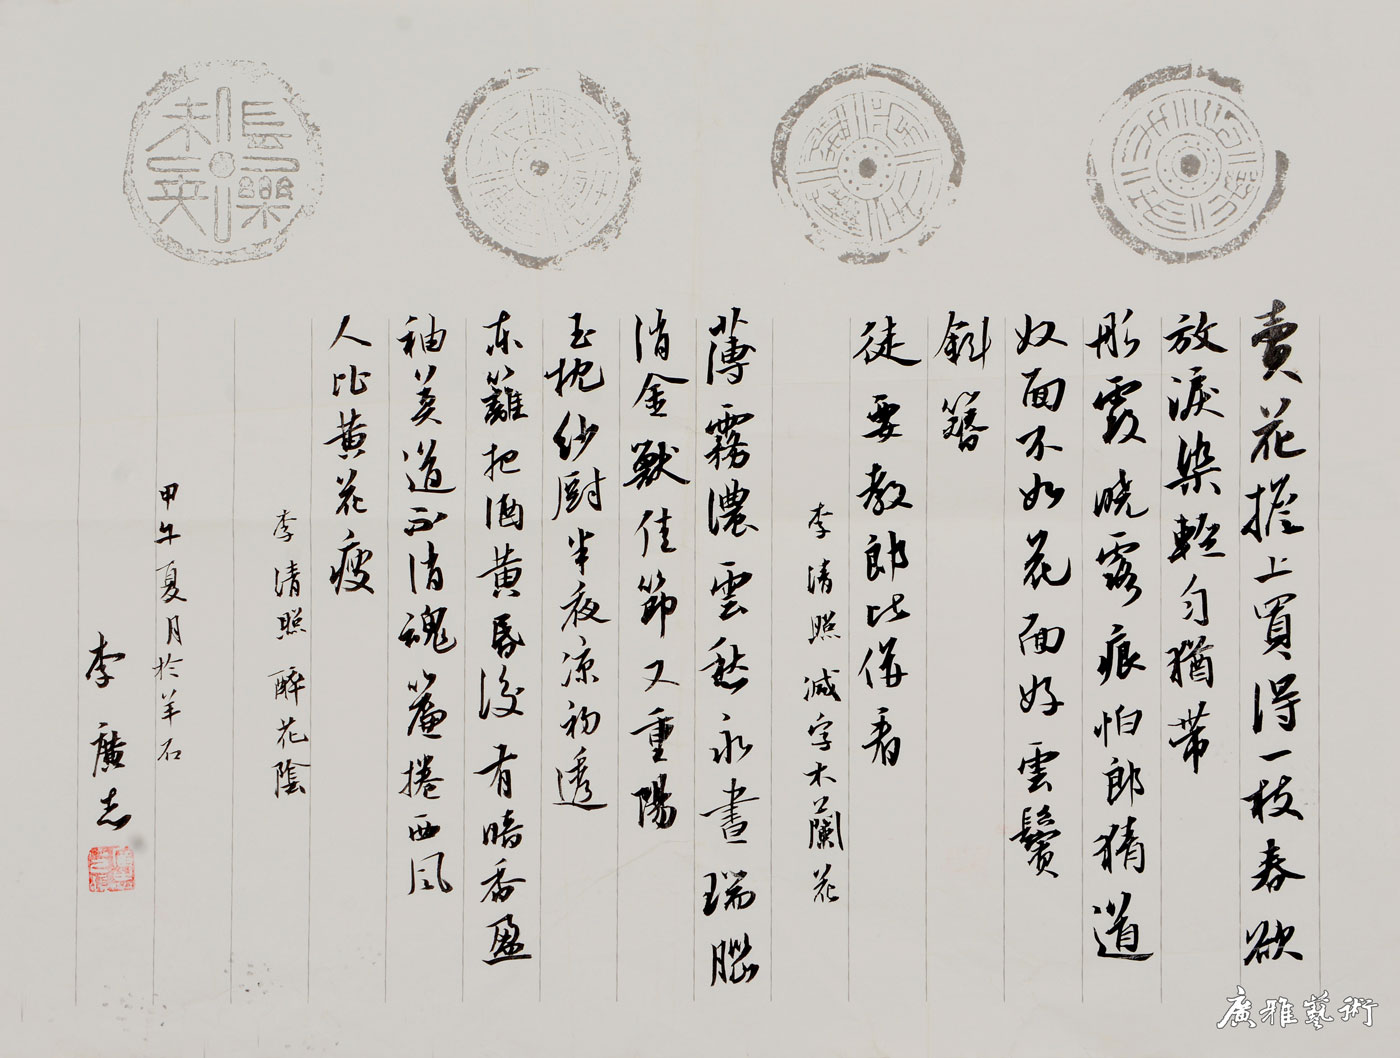 長樂未央
賣花擔上買得一枝春欲
放淚染輕勻猶帶
彤霞曉露痕怕郎猜道
奴面不如花面好雲鬢
斜簪
徒要教郎比併看
李清照減字木蘭花
薄霧濃雲愁永晝瑞腦
消金獸佳節又重陽
玉枕紗厨半夜凉初透
东籬把酒黄昏後有暗香盈
袖莫道不消魂簾捲西風
人比黄花瘦
李清照醉花陰
甲午夏月於羊石
李廣志
廣雅藝術